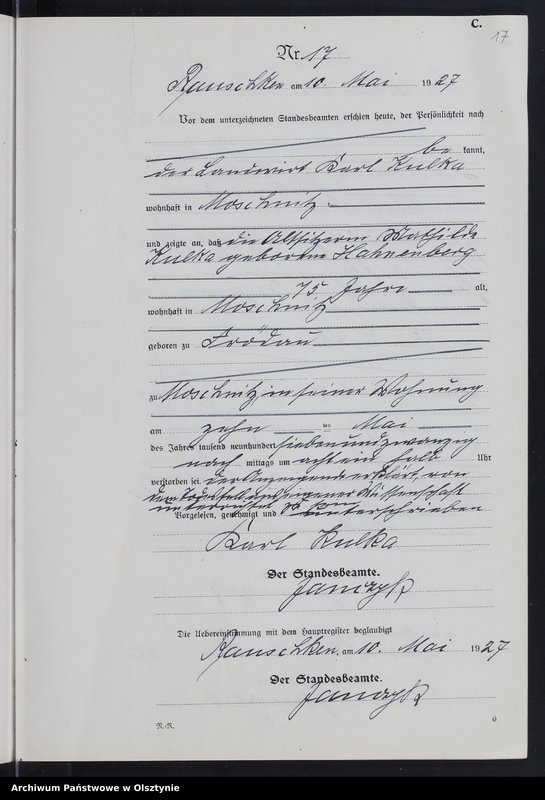 C.
17
Nr. 17
Rauschken am 10. Mai 1927
Vor dem unterzeichneten Standesbeamten erschien heute, der Persönlichkeit nach
be kannt,
der Landwirt Karl Kulka
wohnhaft in Moschnitz
und zeigte an, daß die Altsitzerin Mathilde
Kulka geborene Hahnenberg
75 Jahre alt,
wohnhaft in Moschnitz
geboren zu Frödau
zu Moschnitz, in seiner Wohnung
am zehn ten Mai
des Jahres tausend neunhundert siebenundzwanzig
nach mittags um acht ein halb Uhr
verstorben sei. Der Anzeigende erklärt, von
dem Todesfall aus eigener Wissenschaft
unterrichtet zu sein
Vorgelesen, genehmigt und unterschrieben
Karl Kulka
Der Standesbeamte.
Die Uebereinstimmung mit dem Hauptregister beglaubigt
Rauschken, am 10. Mai 1927
Der Standesbeamte.
N.-R.
6
Archiwum Państwowe w Olsztynie